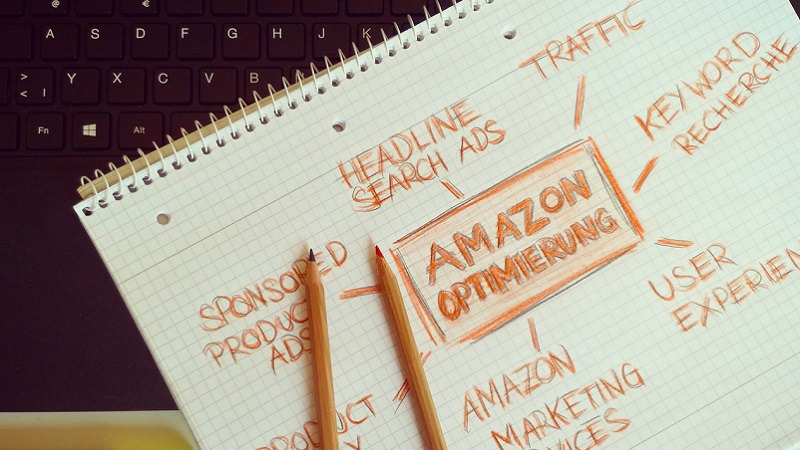 @ €
A S D F G H J K
> < | Y X C V B
Fn Alt
TRAFFIC
KEYWORD
RECHERCHE
HEADLINE
SEARCH ADS
AMAZON
OPTIMIERUNG
SPONSORED
PRODUCT
ADS
USER
EXPERIEN
AMAZON
MARKETING